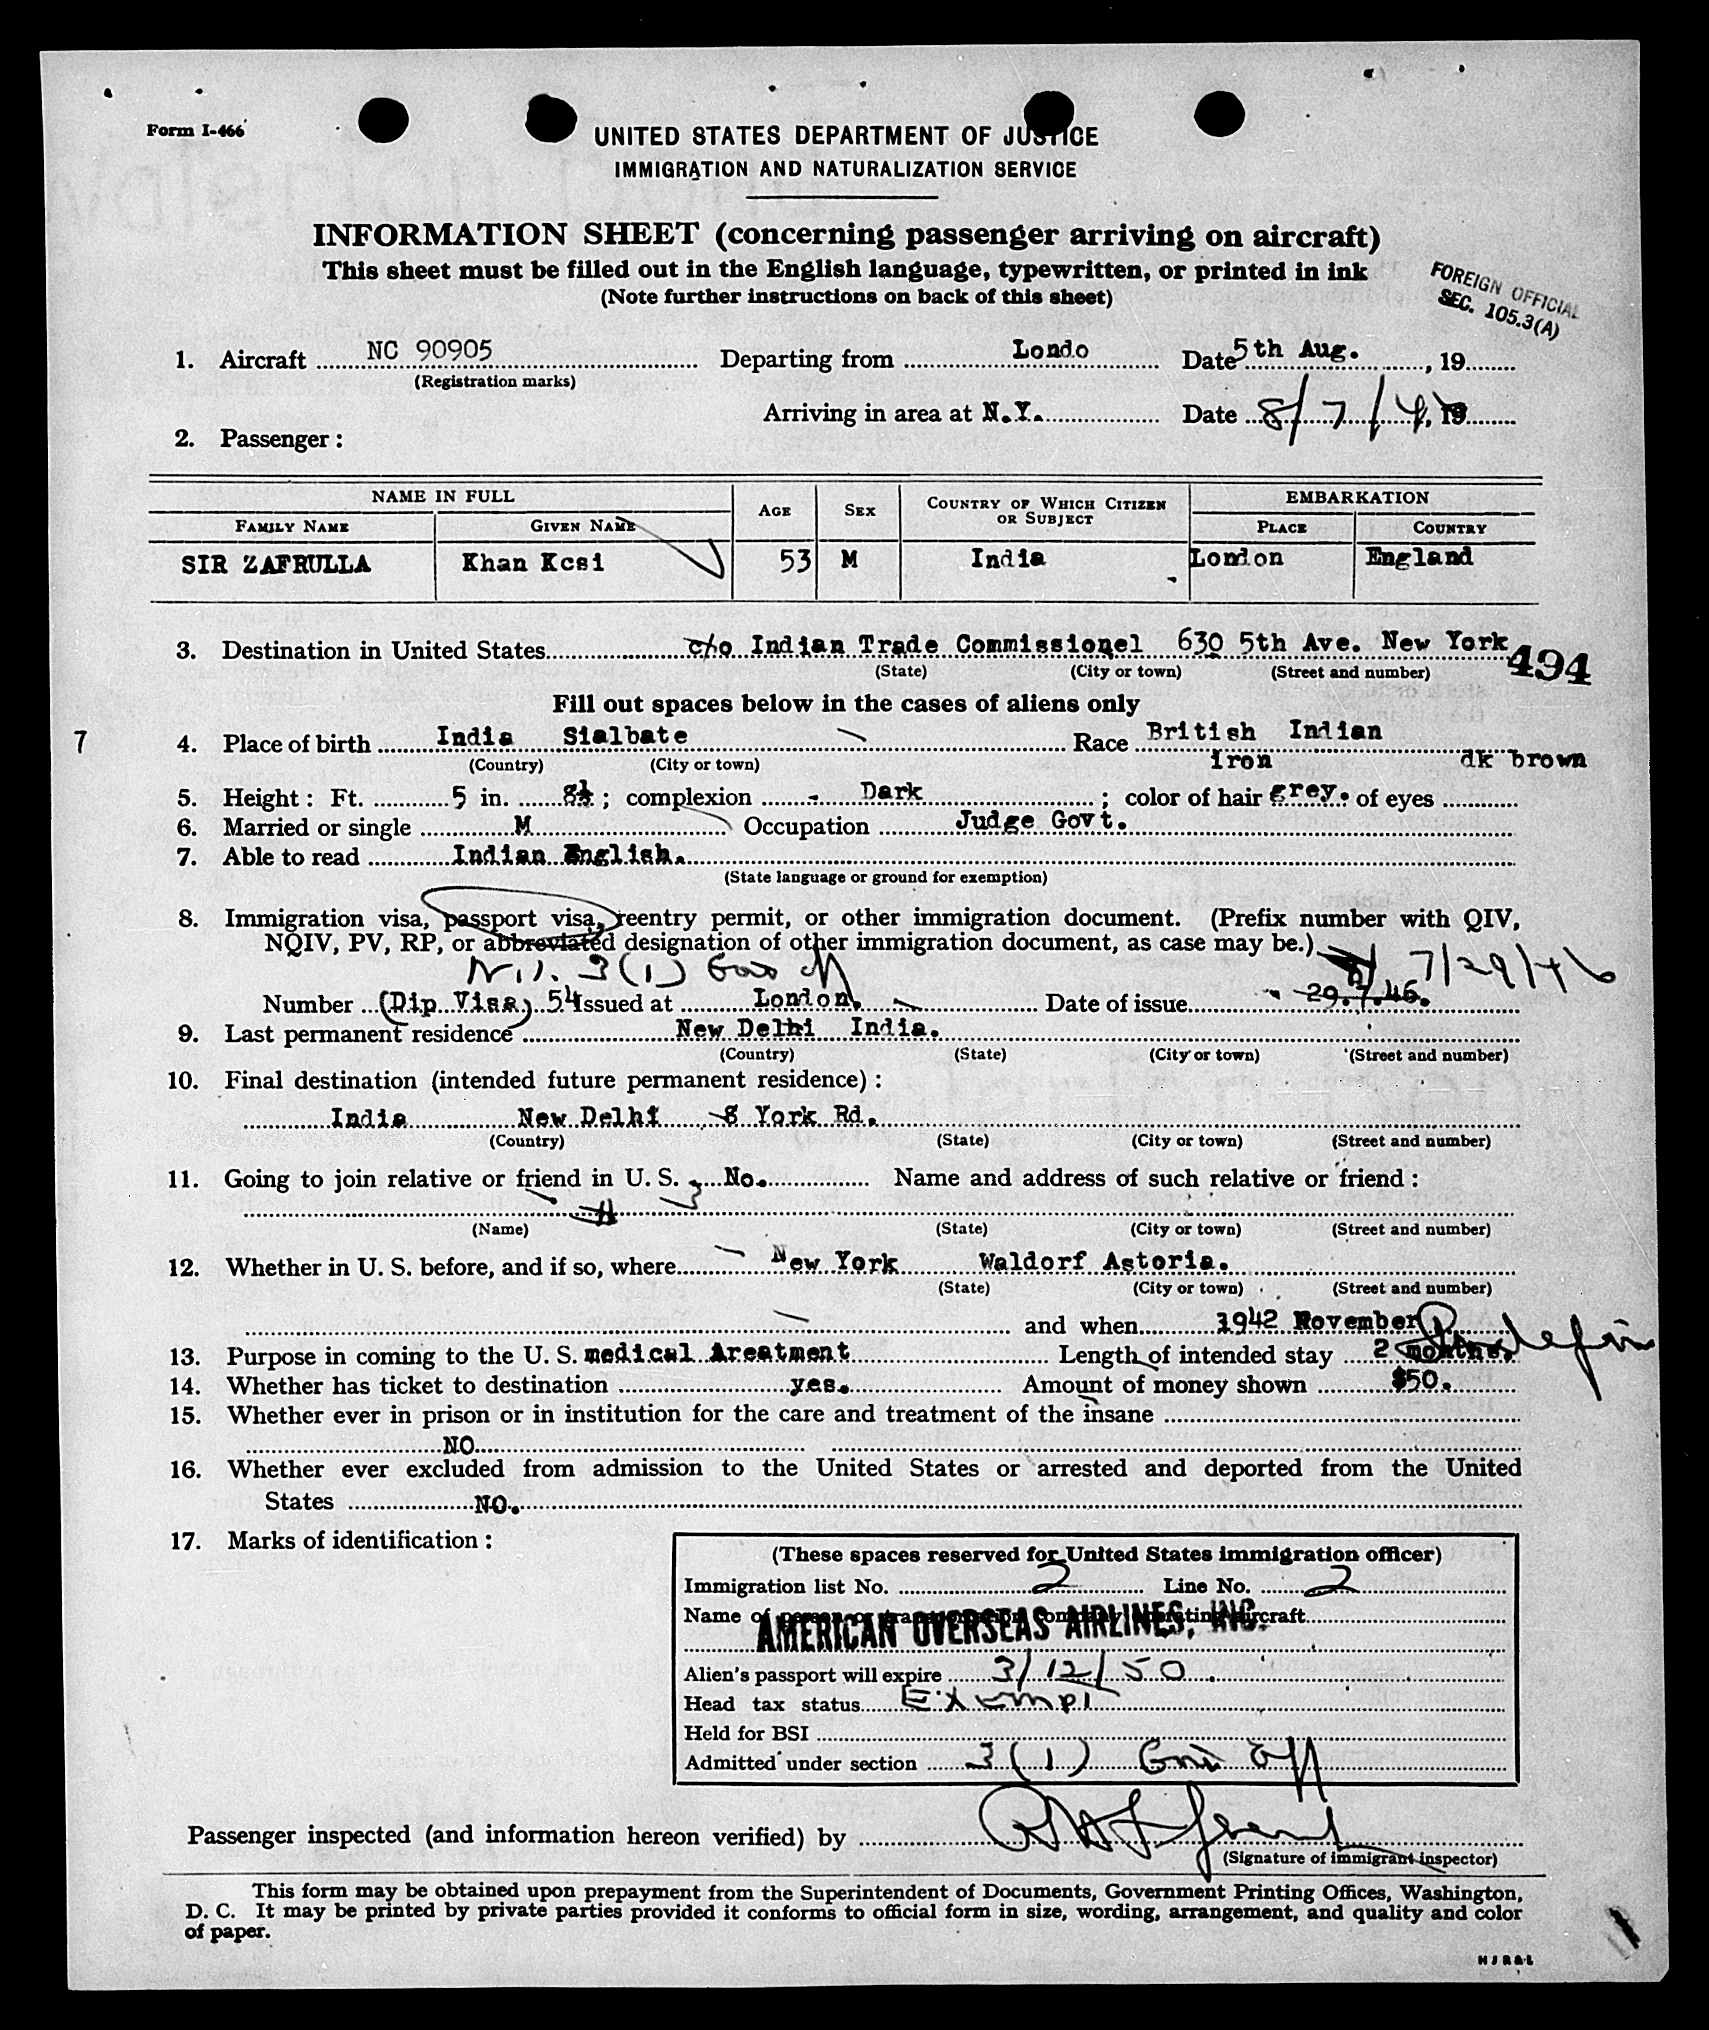 Form I-466
UNITED STATES DEPARTMENT OF JUSTICE
IMMIGRATION AND NATURALIZATION SERVICE
INFORMATION SHEET (concerning passenger arriving on aircraft)
This sheet must be filled out in the English language, typewritten, or printed in ink
(Note further instructions on back of this sheet)
FOREIGN OFFICIAL
SEC. 105.3(A)
1. Aircraft NC 90905 Departing from Londo Date 5th Aug. , 19
(Registration marks)
Arriving in area at N.Y. Date 8/7/4, 19
2. Passenger:
NAME IN FULL AGE SEX COUNTRY OF WHICH CITIZEN OR SUBJECT EMBARKATION
FAMILY NAME GIVEN NAME PLACE COUNTRY
SIR ZAFRULLA Khan Kcsi 53 M India London England
3. Destination in United States c/o Indian Trade Commissionel 630 5th Ave. New York
(State) (City or town) (Street and number)
494
Fill out spaces below in the cases of aliens only
7
4. Place of birth India Sialbate Race British Indian
(Country) (City or town)
iron dk brown
5. Height: Ft. 5 in. 8½; complexion Dark; color of hair grey. of eyes
6. Married or single M Occupation Judge Govt.
7. Able to read Indian English.
(State language or ground for exemption)
8. Immigration visa, passport visa, reentry permit, or other immigration document. (Prefix number with QIV,
NQIV, PV, RP, or abbreviated designation of other immigration document, as case may be.)
3(1) 7/29/46
Number (Dip Visa) 54 Issued at London. Date of issue 29.7.46.
9. Last permanent residence New Delhi India.
(Country) (State) (City or town) (Street and number)
10. Final destination (intended future permanent residence):
India New Delhi 8 York Rd.
(Country) (State) (City or town) (Street and number)
11. Going to join relative or friend in U. S. No. Name and address of such relative or friend:
(Name) (State) (City or town) (Street and number)
12. Whether in U. S. before, and if so, where New York Waldorf Astoria.
(State) (City or town) (Street and number)
and when 1942 November
13. Purpose in coming to the U. S. medical Areatment Length of intended stay 2 months.
14. Whether has ticket to destination yes. Amount of money shown $50.
15. Whether ever in prison or in institution for the care and treatment of the insane
NO
16. Whether ever excluded from admission to the United States or arrested and deported from the United
States NO.
17. Marks of identification:
(These spaces reserved for United States immigration officer)
Immigration list No. 2 Line No. 2
Name of person or transportation company operating aircraft
AMERICAN OVERSEAS AIRLINES, INC.
Alien's passport will expire 3/12/50
Head tax status Exempt
Held for BSI
Admitted under section 3(1) Gov Off
Passenger inspected (and information hereon verified) by
(Signature of immigrant inspector)
This form may be obtained upon prepayment from the Superintendent of Documents, Government Printing Offices, Washington,
D. C. It may be printed by private parties provided it conforms to official form in size, wording, arrangement, and quality and color
of paper.